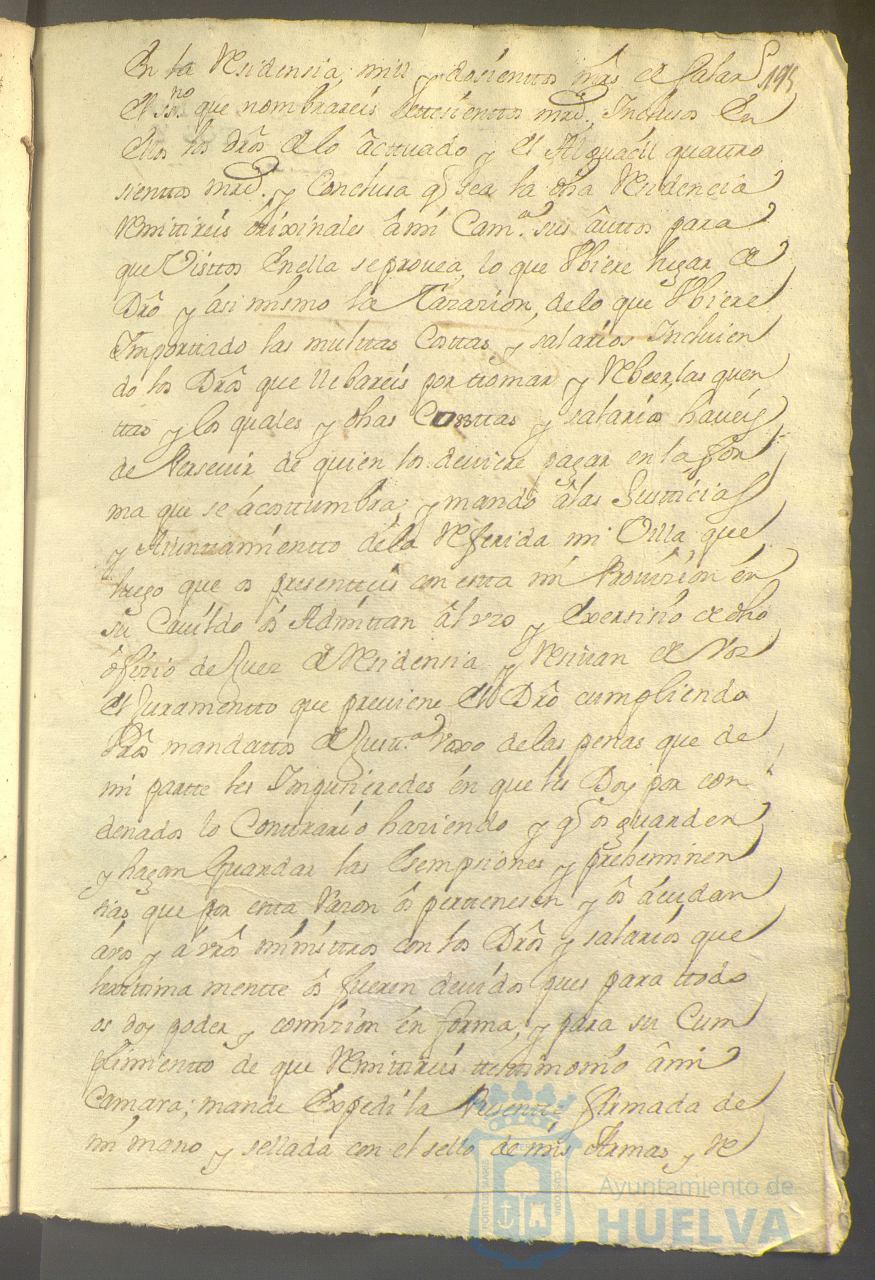 En la Residensia, mill y dosienttos mrs de Salar
195
El ss.no que nombrareis settesienttos mrd. Inclusos En
Ellos los dros de lo acttuado y el Alguacil quattro
sienttos mrd. y Conclusa q sea la dha Residencia
Remittireis orixinales a mi Cam.a sus auttos para
que Visttos Enella seprovea, lo que Ubiere lugar de
Dro y asi mismo la Tazazion, de lo que Ubiere
Importtado las multtas Costtas y salarios Incluien
do los Dros que llebareis por ttomar y Rebeer, las quen
ttas y los quales y dhas Costtas y salarios haveis
de Persevir de quien los deviere pagar en la for
ma que se acosttumbra; y mando a las Justticias
y Aiunttamientto de la Referida mi Villa que
luego que os presentteis con estta mi Provision en
su Cavildo os Admittan al vso y Exersisio de dho
ofizio de Juez de Residensia y Resivan de Vos
el Juramentto que previene el Dro cumpliendo
Vros mandattos de Justt.a vaxo de las penas que de
mi partte les Impusieredes en que les Doy por con
denados lo Conttrario haziendo y q os guarden
y hagan Guardar las Esempsiones y preheminen
sias que por estta Razon os perttenesen y os acudan
avos y a vros ministtros con los Dros y salarios que
lexittima mentte os fueren devidos pues para ttodo
os doy poder y comizion en forma, y para su Cum
plimientto de que Remittireis ttesttimonio a mi
Camara; mande Expedi la Presentte firmada de
mi mano y sellada con el sello de mis Armas y Re
Ayuntamiento de
HUELVA